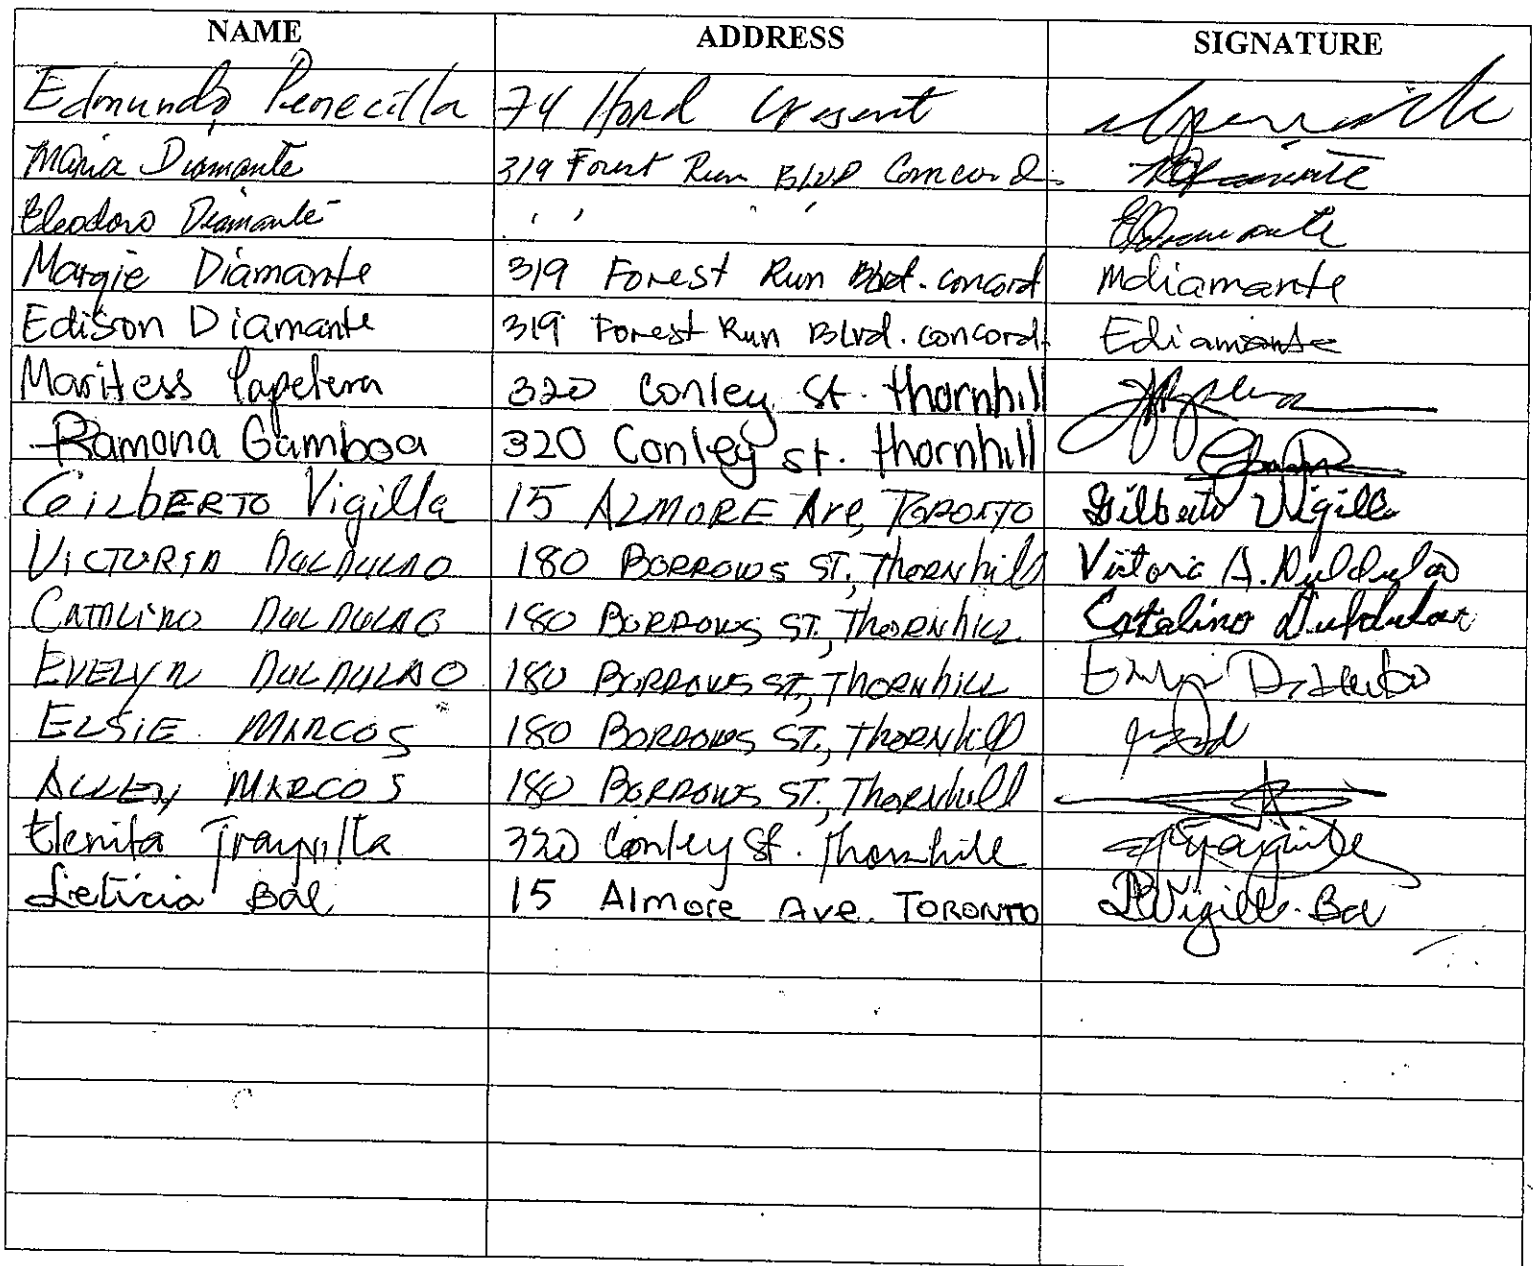 NAME ADDRESS SIGNATURE
Edmundo Penecilla 74 Hord Cresent
Maria Diamante 319 Forest Run BLVD Concord.
Eleodoro Diamante " "
Margie Diamante 319 Forest Run Blvd. concord mdiamante
Edison Diamante 319 Forest Run Blvd. concord. Ediamante
Maritess Papelera 320 Conley St. thornhill
Ramona Gamboa 320 Conley st. thornhill
GILBERTO Vigilla 15 ALMORE Ave, TORONTO Gilberto Vigilla
VICTORIA DULDULAO 180 BORROWS ST., Thornhill Victoria A. Duldulao
CATALINO DULDULAO 180 BORROWS ST., ThORNhiLL Catalino Duldulao
EVELYN DULDULAO 180 BORROWS ST., ThORNhiLL
ELSIE MARCOS 180 BORROWS ST., ThORNhill
MARCOS 180 BORROWS ST., Thornhill
Elenita 320 Conley St. Thornhill
Leticia Bal 15 Almore Ave. TORONTO LVigilla-Bal